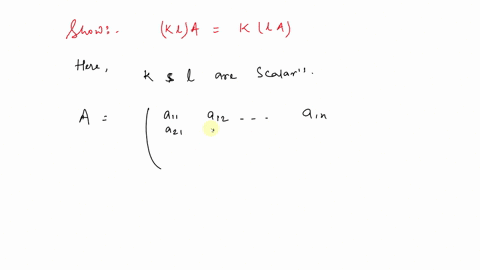 Show:. (Kl)A = K(lA)
Here, K & l are Scalar's.
A = ( a11 a12 --- a1n
a21